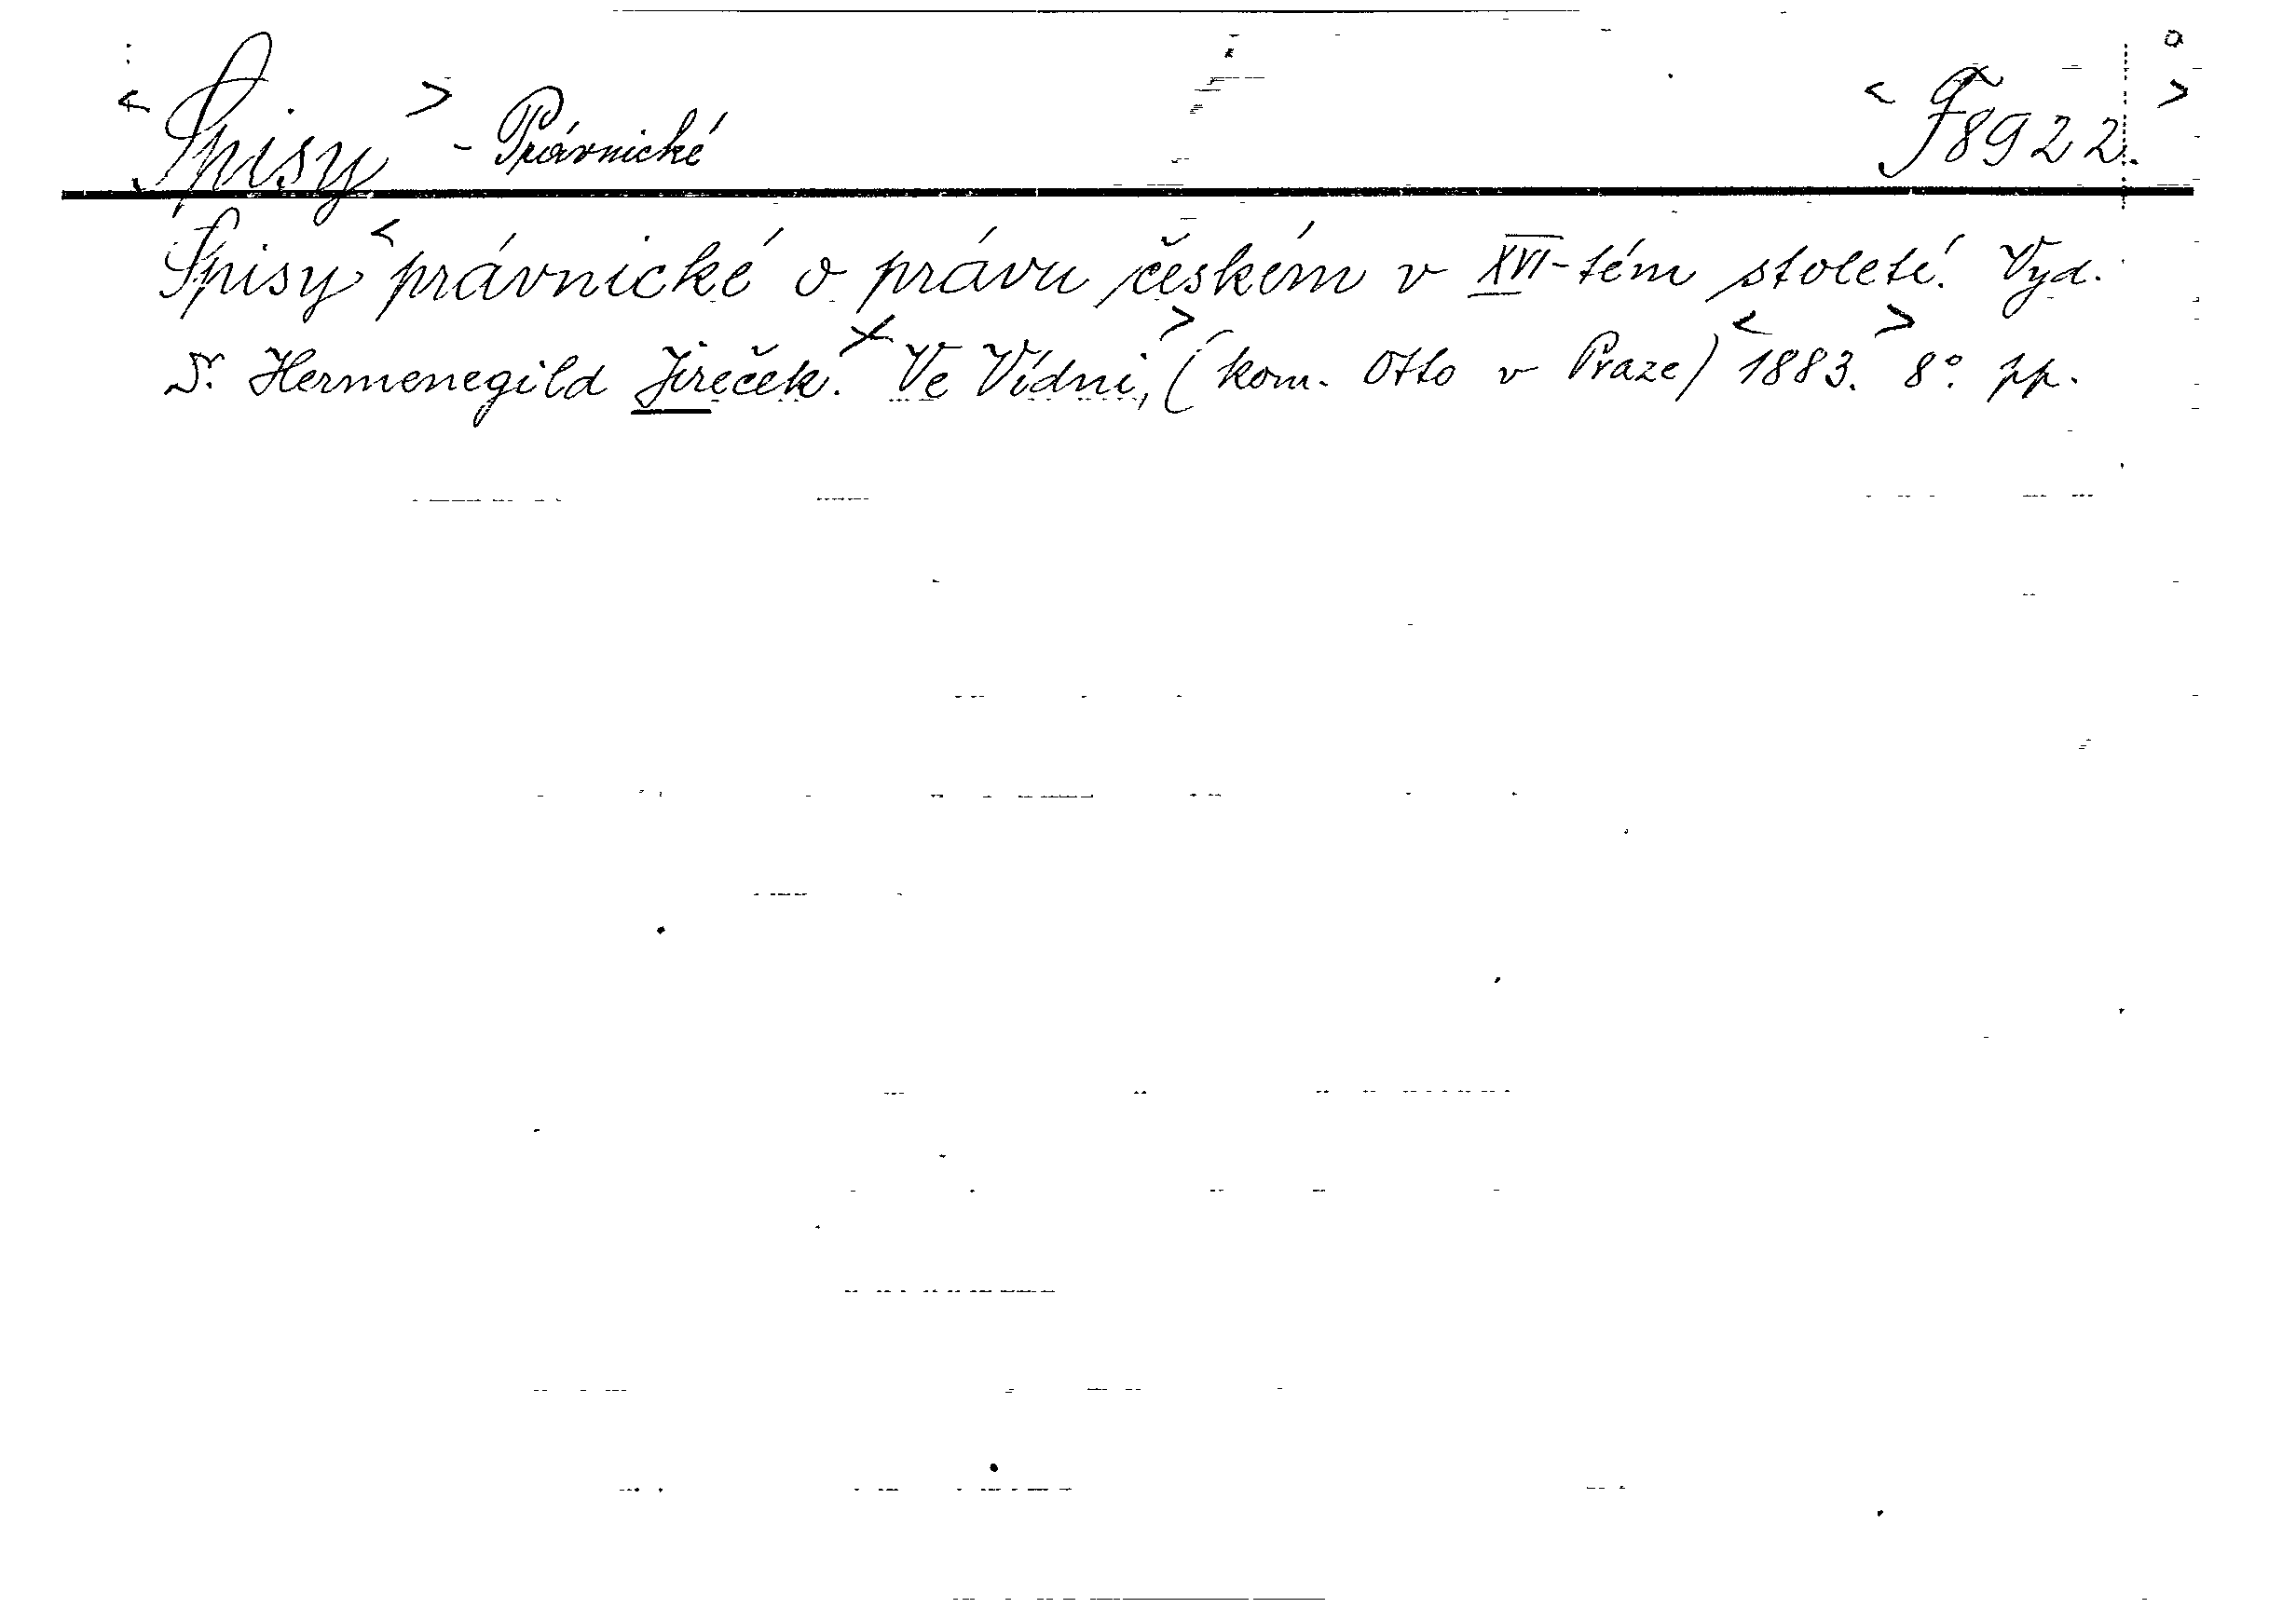 < Spisy > - Právnické < F 8922. >
Spisy < právnické o právu českém v XVI-tém století. Vyd.
Dr. Hermenegild Jireček. Ve Vídni, > (kom. Otto v Praze) < 1883. > 8°. pp.